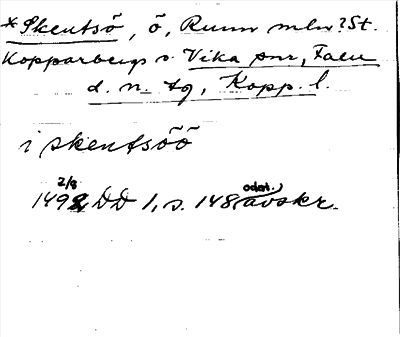 *Skentsö, ö, Runn mln ? St.
Kopparbergs o. Vika snr, Falu
d. n. tg, Kopp. l.
i skentsöö
2/8 odat.)
1492 DD 1, s. 148, avskr.